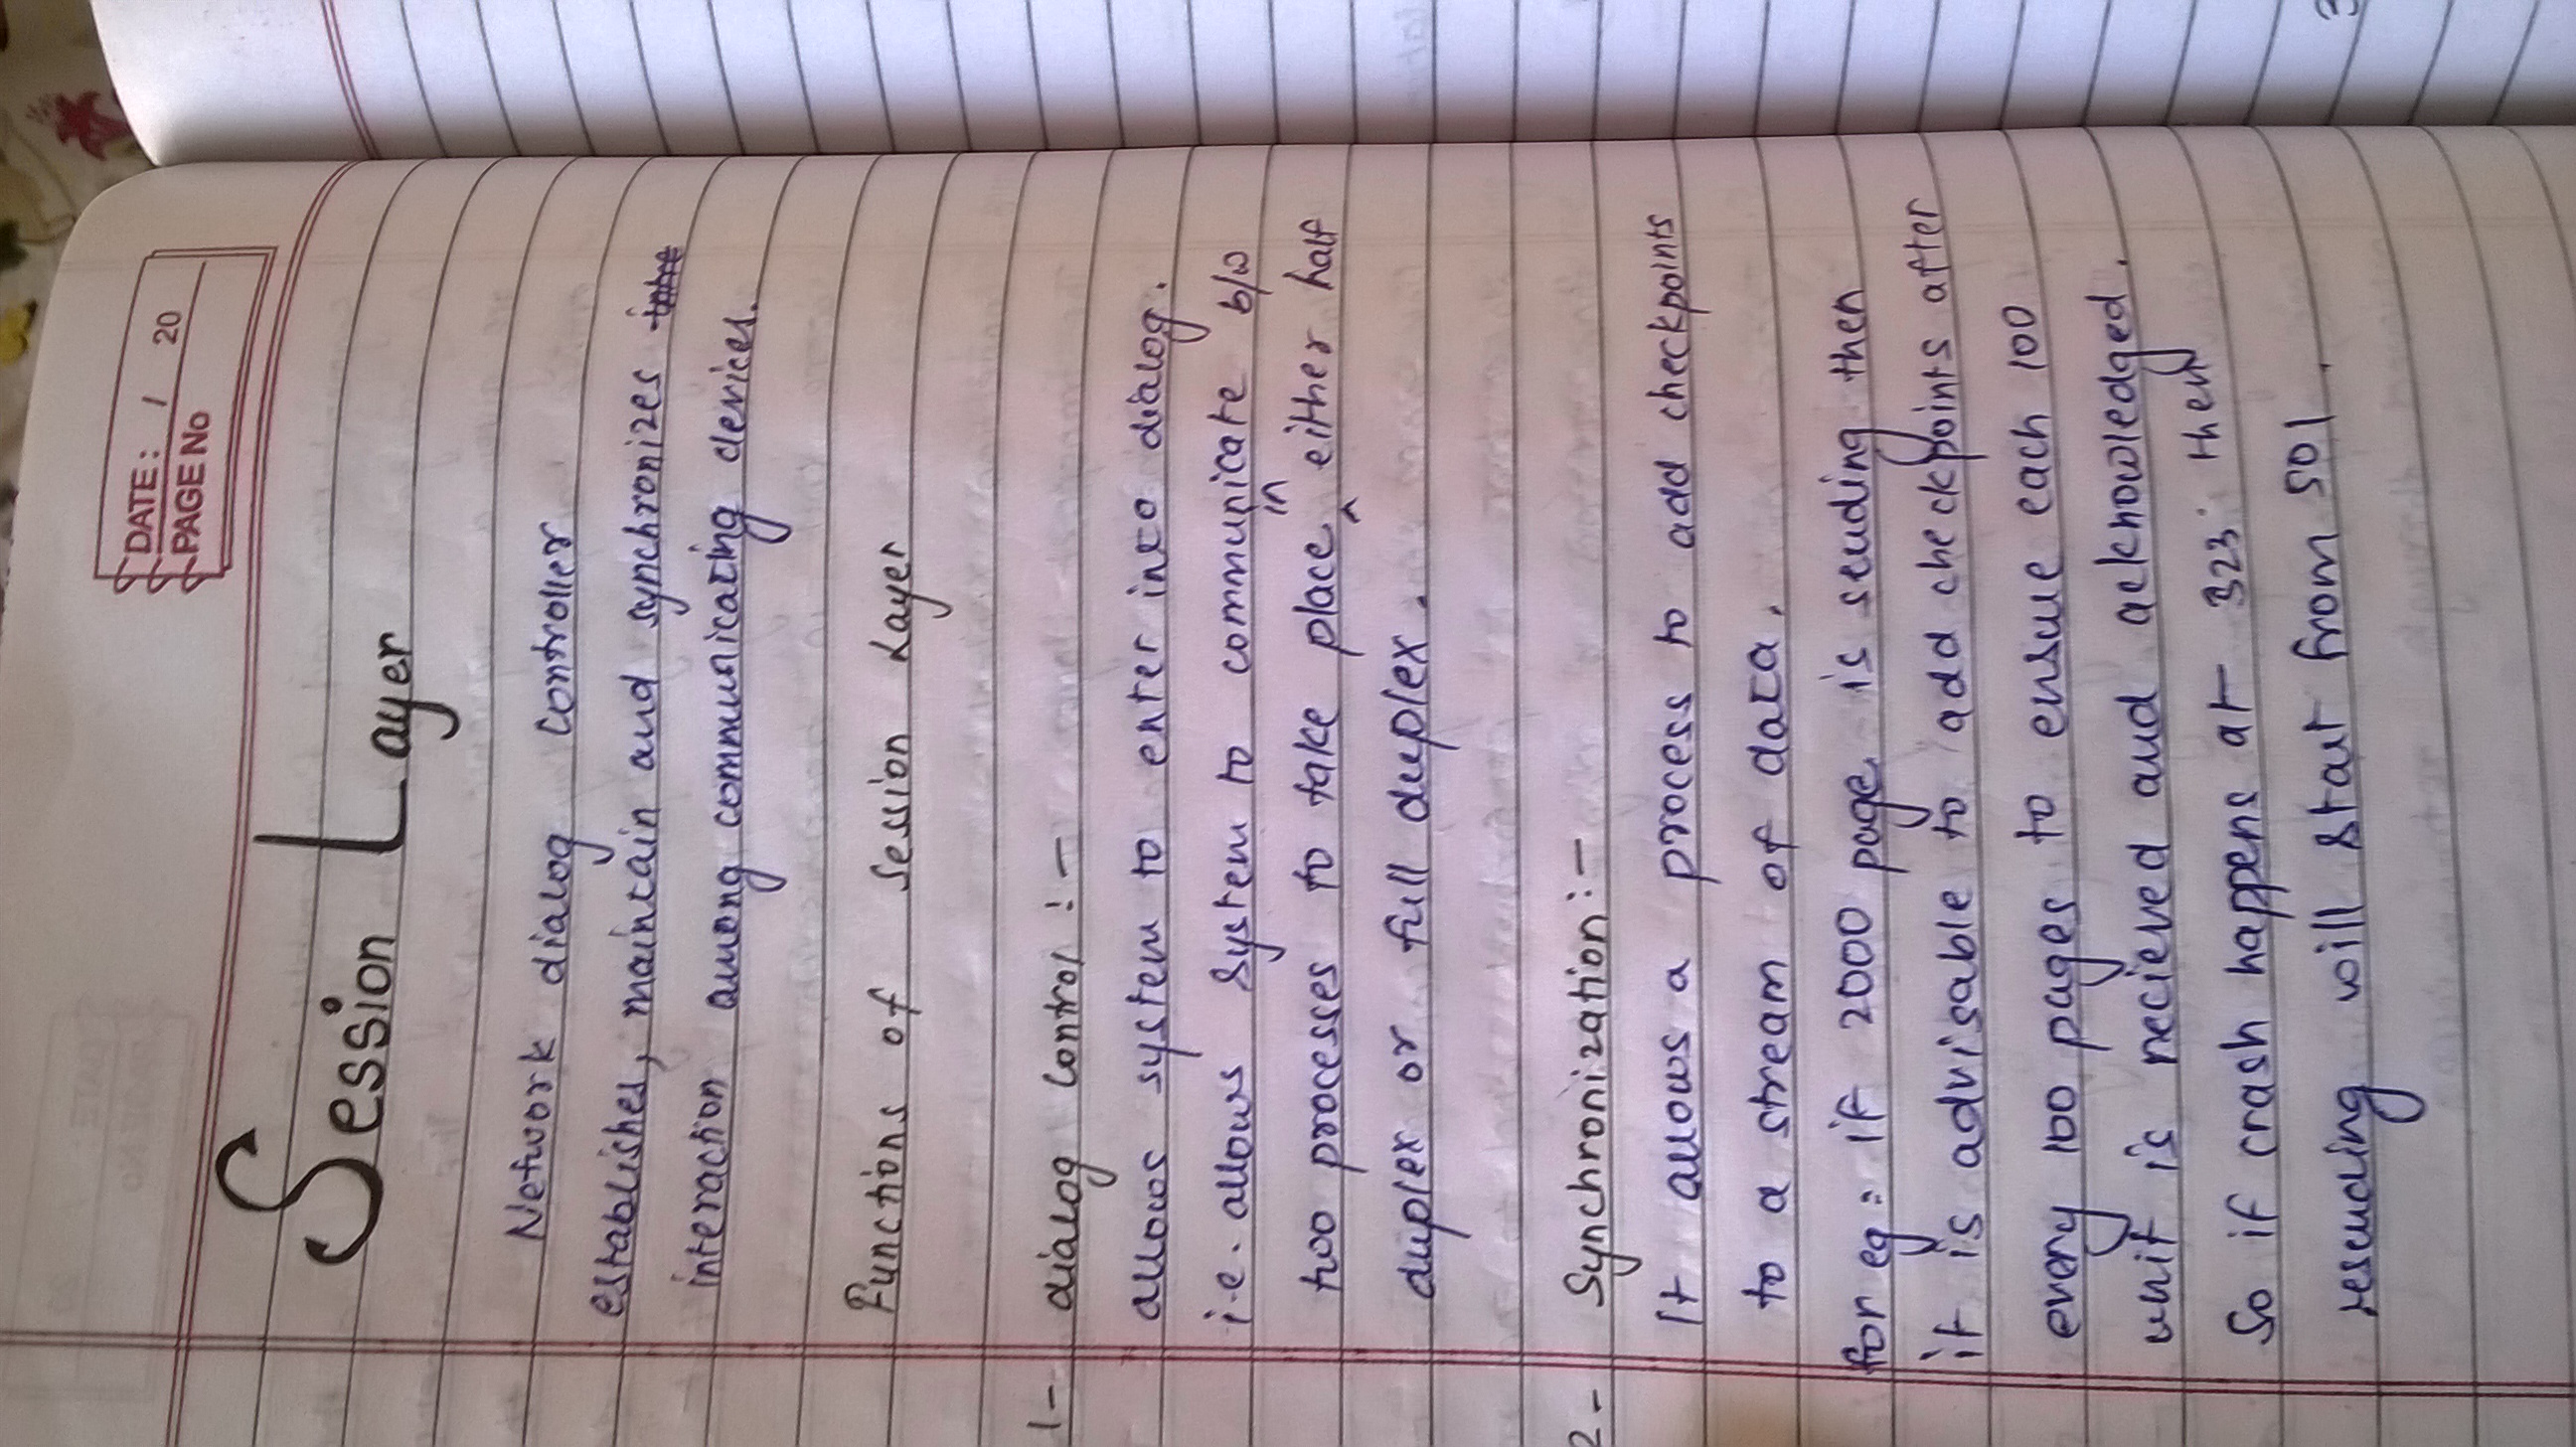 DATE: / 20
PAGE No
Session Layer
Network dialog controller
establishes, maintain and synchronizes
interaction among communicating devices.
Functions of Session Layer
1- dialog control :-
allows system to enter into dialog.
i.e. allows system to communicate b/w
two processes to take place in either half
duplex or full duplex.
2- Synchronization:-
It allows a process to add checkpoints
to a stream of data.
for eg: if 2000 page is sending then
it is advisable to add checkpoints after
every 100 pages to ensure each 100
unit is recieved and acknowledged.
So if crash happens at 323 then
resending will start from 501.